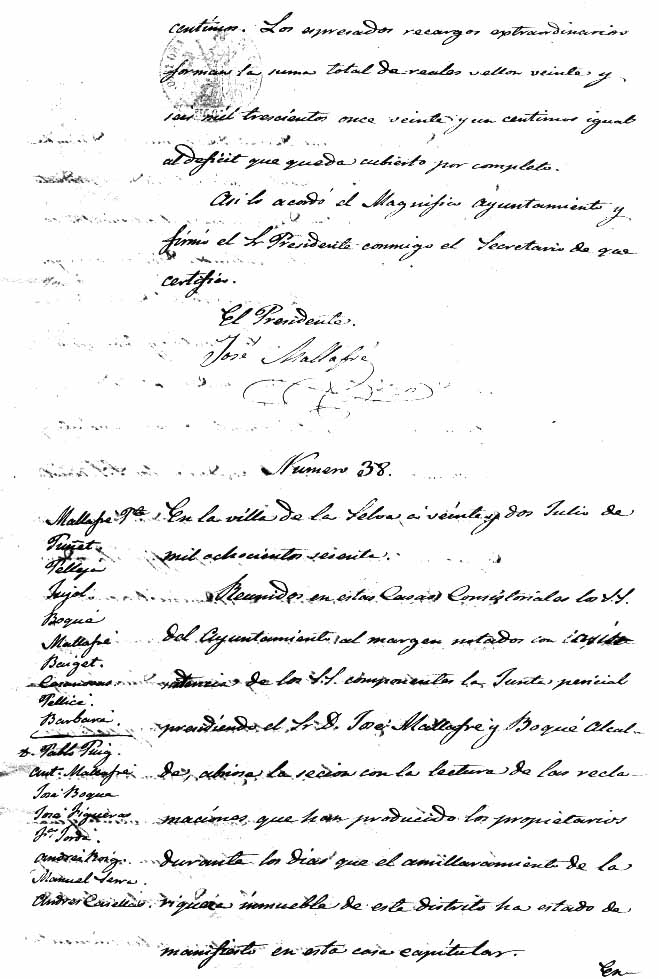 centimos. Los espresados recargos extraordinarios
forman la suma total de reales vellon veinte y
seis mil trescientos once veinte y un centimos igual
al deficit que queda cubierto por completo.
Asi lo acordó el Magnifico Ayuntamiento y
firmó el Sr Presidente conmigo el Secretario de que
certifico.
El Presidente.
José Mallafré
Numero 38.
Mallafré Pte
Puñet.
Pellejá
Pujol.
Boqué
Mallafré
Baiget.
Casanovas
Pellicé.
Barbará.
D. Pablo Puig.
Ant. Mallafré
José Boque
José Figueras
Fco Jordá.
Andrés Roig
Manuel Serra.
Andres Caselles
En la villa de la Selva á veinte y dos Julio de
mil ochocientos sesenta.
Reunidos en estas Casas Consistoriales los S.S.
del Ayuntamiento al margen notados con
de los S.S. componentes la Junta pericial
presidiendo el Sr D. José Mallafré y Boqué Alcal-
de, abiose la secion con la lectura de las recla-
maciones que han producido los propietarios
durante los dias que el amillaramiento de la
riqueza inmueble de este distrito ha estado de
manifiesto en esta casa capitular.
En-